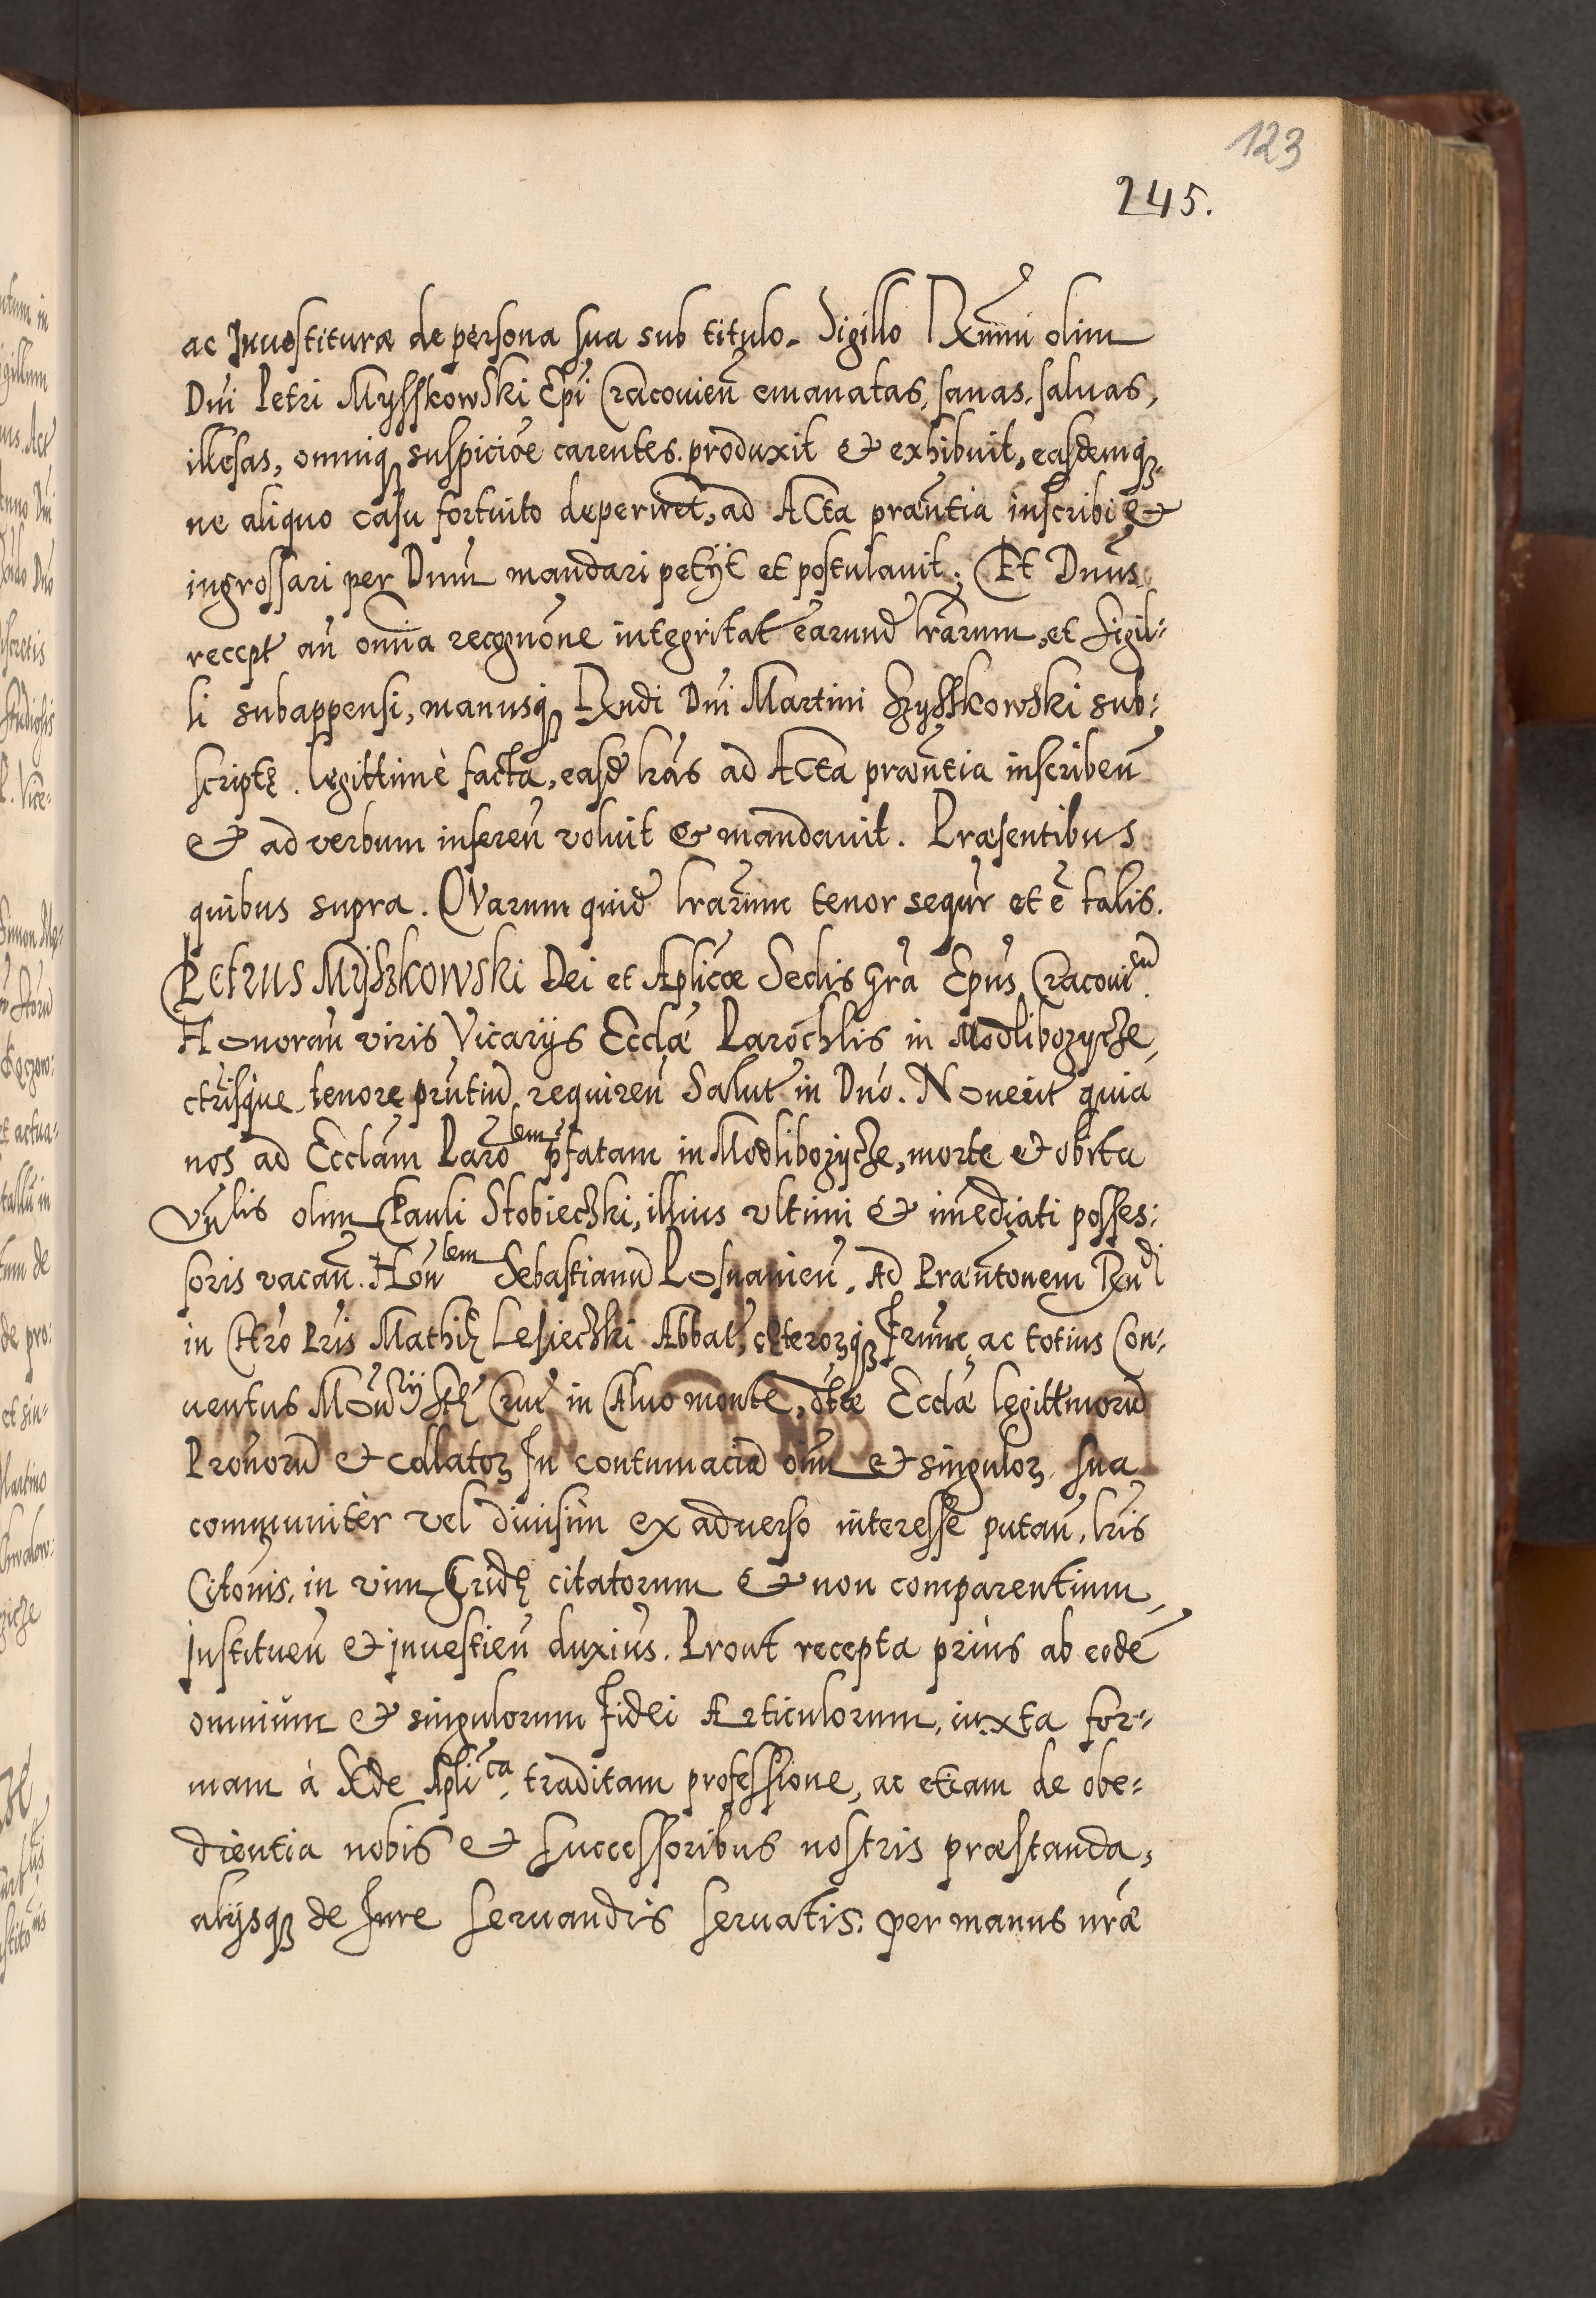 123
245.
ac Inuestituræ de persona sua sub titulo. Sigillo Rx̃mi olim
Dni Petri Mysskowski Epi Cracouieñ emanatas, sanas, saluas,
illesas, omniq; suspicióe carentes. produxit & exhibuit, easdemq;
ne aliquo casu fortuito deperirét, ad Acta præñtia inscribi &
ingrossari per Dnm̃ mandari petijt et postulauit; Et Dnus
recept añ omĩa recognóne integritat̃ earund̃ lrarum, et Sigil-
li subappensi, manusq; Rx̃ndi Dni Martini Szysskowski sub-
scriptę. legittimè facta, easd̃ lrãs ad Acta præñtia inscribeñ
& ad verbum insereñ voluit & mandauit. Præsentibus
quibus supra. QVarum quid̃ lrãrum tenor sequr̃ et ẽ talis.
Petrus Myszkowski Dei et Aplicæ Sedis Grã Epus Cracouiẽñ.
Honorañ viris Vicarijs Ecclæ Parochlis in Modliborzycze,
ctrisque tenore prñtiũ requireñ Salut̃ in Dnó. Nouerit̃ quia
nos ad Ecclám Paro^lem p̃fatam in Modliborzycze, morte & obitu
Vñlis olim Pauli Stobieczki, illius vltimi & iṁediati posses-
soris vacañ. Hon^lem Sebastianũ Posnanieñ. Ad Præñtonem Rx̃n^di
in Chró Pris Mathię Lesieczki Abbat̃, cęterorq; Frum̃ ac totius Con-
uentus Moñrij Stę Cruc̃ in Caluo monte, d̃tæ Ecclæ legitt̃morũ
Pronorũ & collator̃ In contumaciã oĩm & singulor̃ sua
communitèr vel diuisìm ex aduerso interesse putañ, lris
Citonis, in vim Cridę citatorum & non comparentium,
Instituen̄ & Inuestien̄ duxim̃us. Prout recepta priùs ab eodé
omnium & singulorum Fidei Articulorum, iuxta for-
mam à Sede Apli^ca, traditam professione, ac etiam de obe-
dientia nobis & successoribus nostris præstanda,
alijsq; de Jure seruandis seruatis: per manus nræ